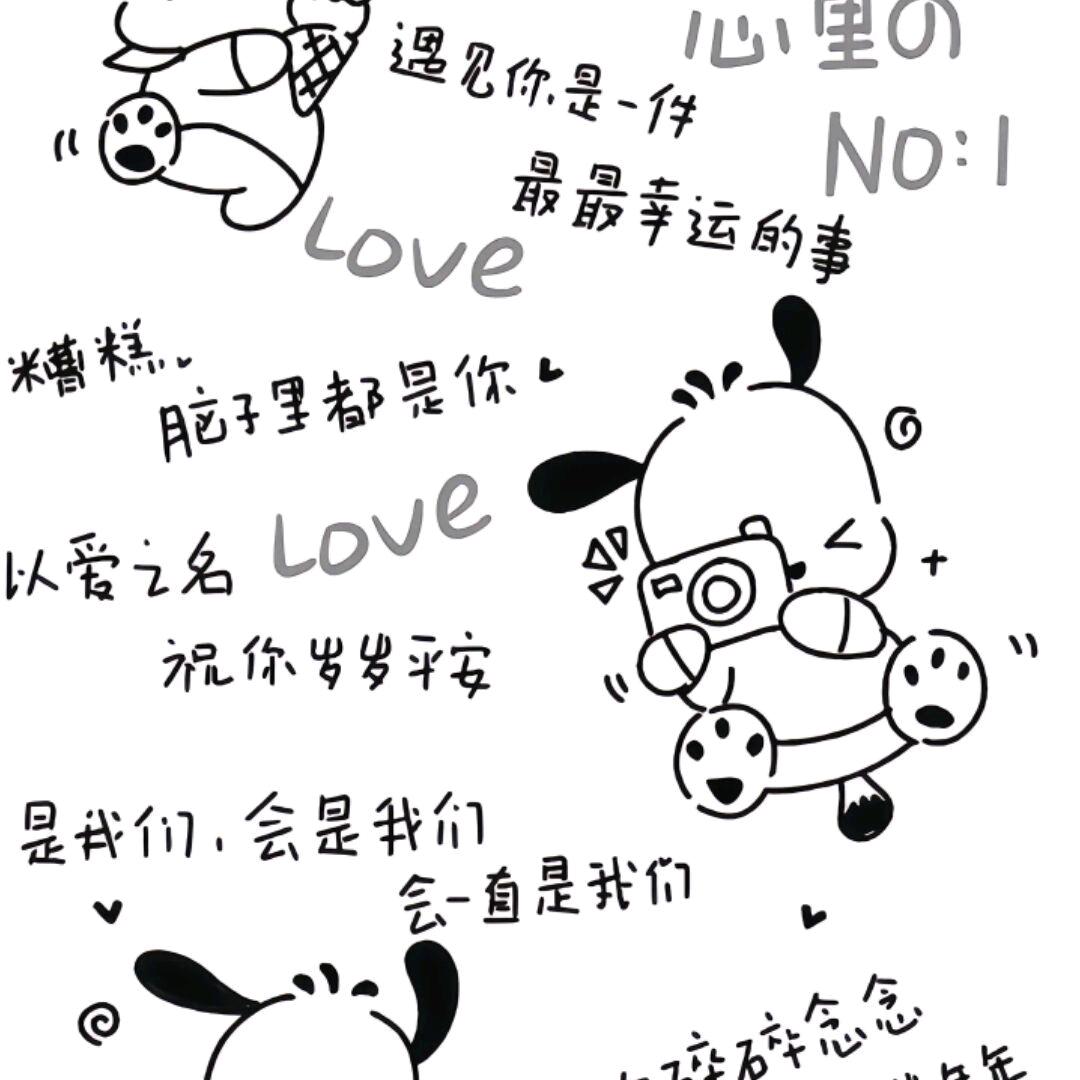 心里の
NO:1
遇见你是一件
最最幸运的事
Love
糟糕
脑子里都是你
Love
以爱之名
祝你岁岁平安
是我们,会是我们
会一直是我们
碎碎念念
年年